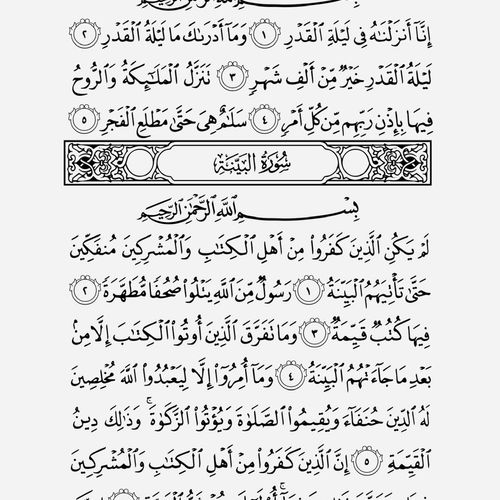 إِنَّآ أَنزَلْنَٰهُ فِى لَيْلَةِ ٱلْقَدْرِ ١ وَمَآ أَدْرَىٰكَ مَا لَيْلَةُ ٱلْقَدْرِ ٢
لَيْلَةُ ٱلْقَدْرِ خَيْرٌ مِّنْ أَلْفِ شَهْرٍ ٣ تَنَزَّلُ ٱلْمَلَٰٓئِكَةُ وَٱلرُّوحُ
فِيهَا بِإِذْنِ رَبِّهِم مِّن كُلِّ أَمْرٍ ٤ سَلَٰمٌ هِىَ حَتَّىٰ مَطْلَعِ ٱلْفَجْرِ ٥
سُورَةُ البَيِّنَةِ
بِسْمِ ٱللَّهِ ٱلرَّحْمَٰنِ ٱلرَّحِيمِ
لَمْ يَكُنِ ٱلَّذِينَ كَفَرُوا۟ مِنْ أَهْلِ ٱلْكِتَٰبِ وَٱلْمُشْرِكِينَ مُنفَكِّينَ
حَتَّىٰ تَأْتِيَهُمُ ٱلْبَيِّنَةُ ١ رَسُولٌ مِّنَ ٱللَّهِ يَتْلُوا۟ صُحُفًا مُّطَهَّرَةً ٢
فِيهَا كُتُبٌ قَيِّمَةٌ ٣ وَمَا تَفَرَّقَ ٱلَّذِينَ أُوتُوا۟ ٱلْكِتَٰبَ إِلَّا مِنۢ
بَعْدِ مَا جَآءَتْهُمُ ٱلْبَيِّنَةُ ٤ وَمَآ أُمِرُوٓا۟ إِلَّا لِيَعْبُدُوا۟ ٱللَّهَ مُخْلِصِينَ
لَهُ ٱلدِّينَ حُنَفَآءَ وَيُقِيمُوا۟ ٱلصَّلَوٰةَ وَيُؤْتُوا۟ ٱلزَّكَوٰةَ ۚ وَذَٰلِكَ دِينُ
ٱلْقَيِّمَةِ ٥ إِنَّ ٱلَّذِينَ كَفَرُوا۟ مِنْ أَهْلِ ٱلْكِتَٰبِ وَٱلْمُشْرِكِينَ